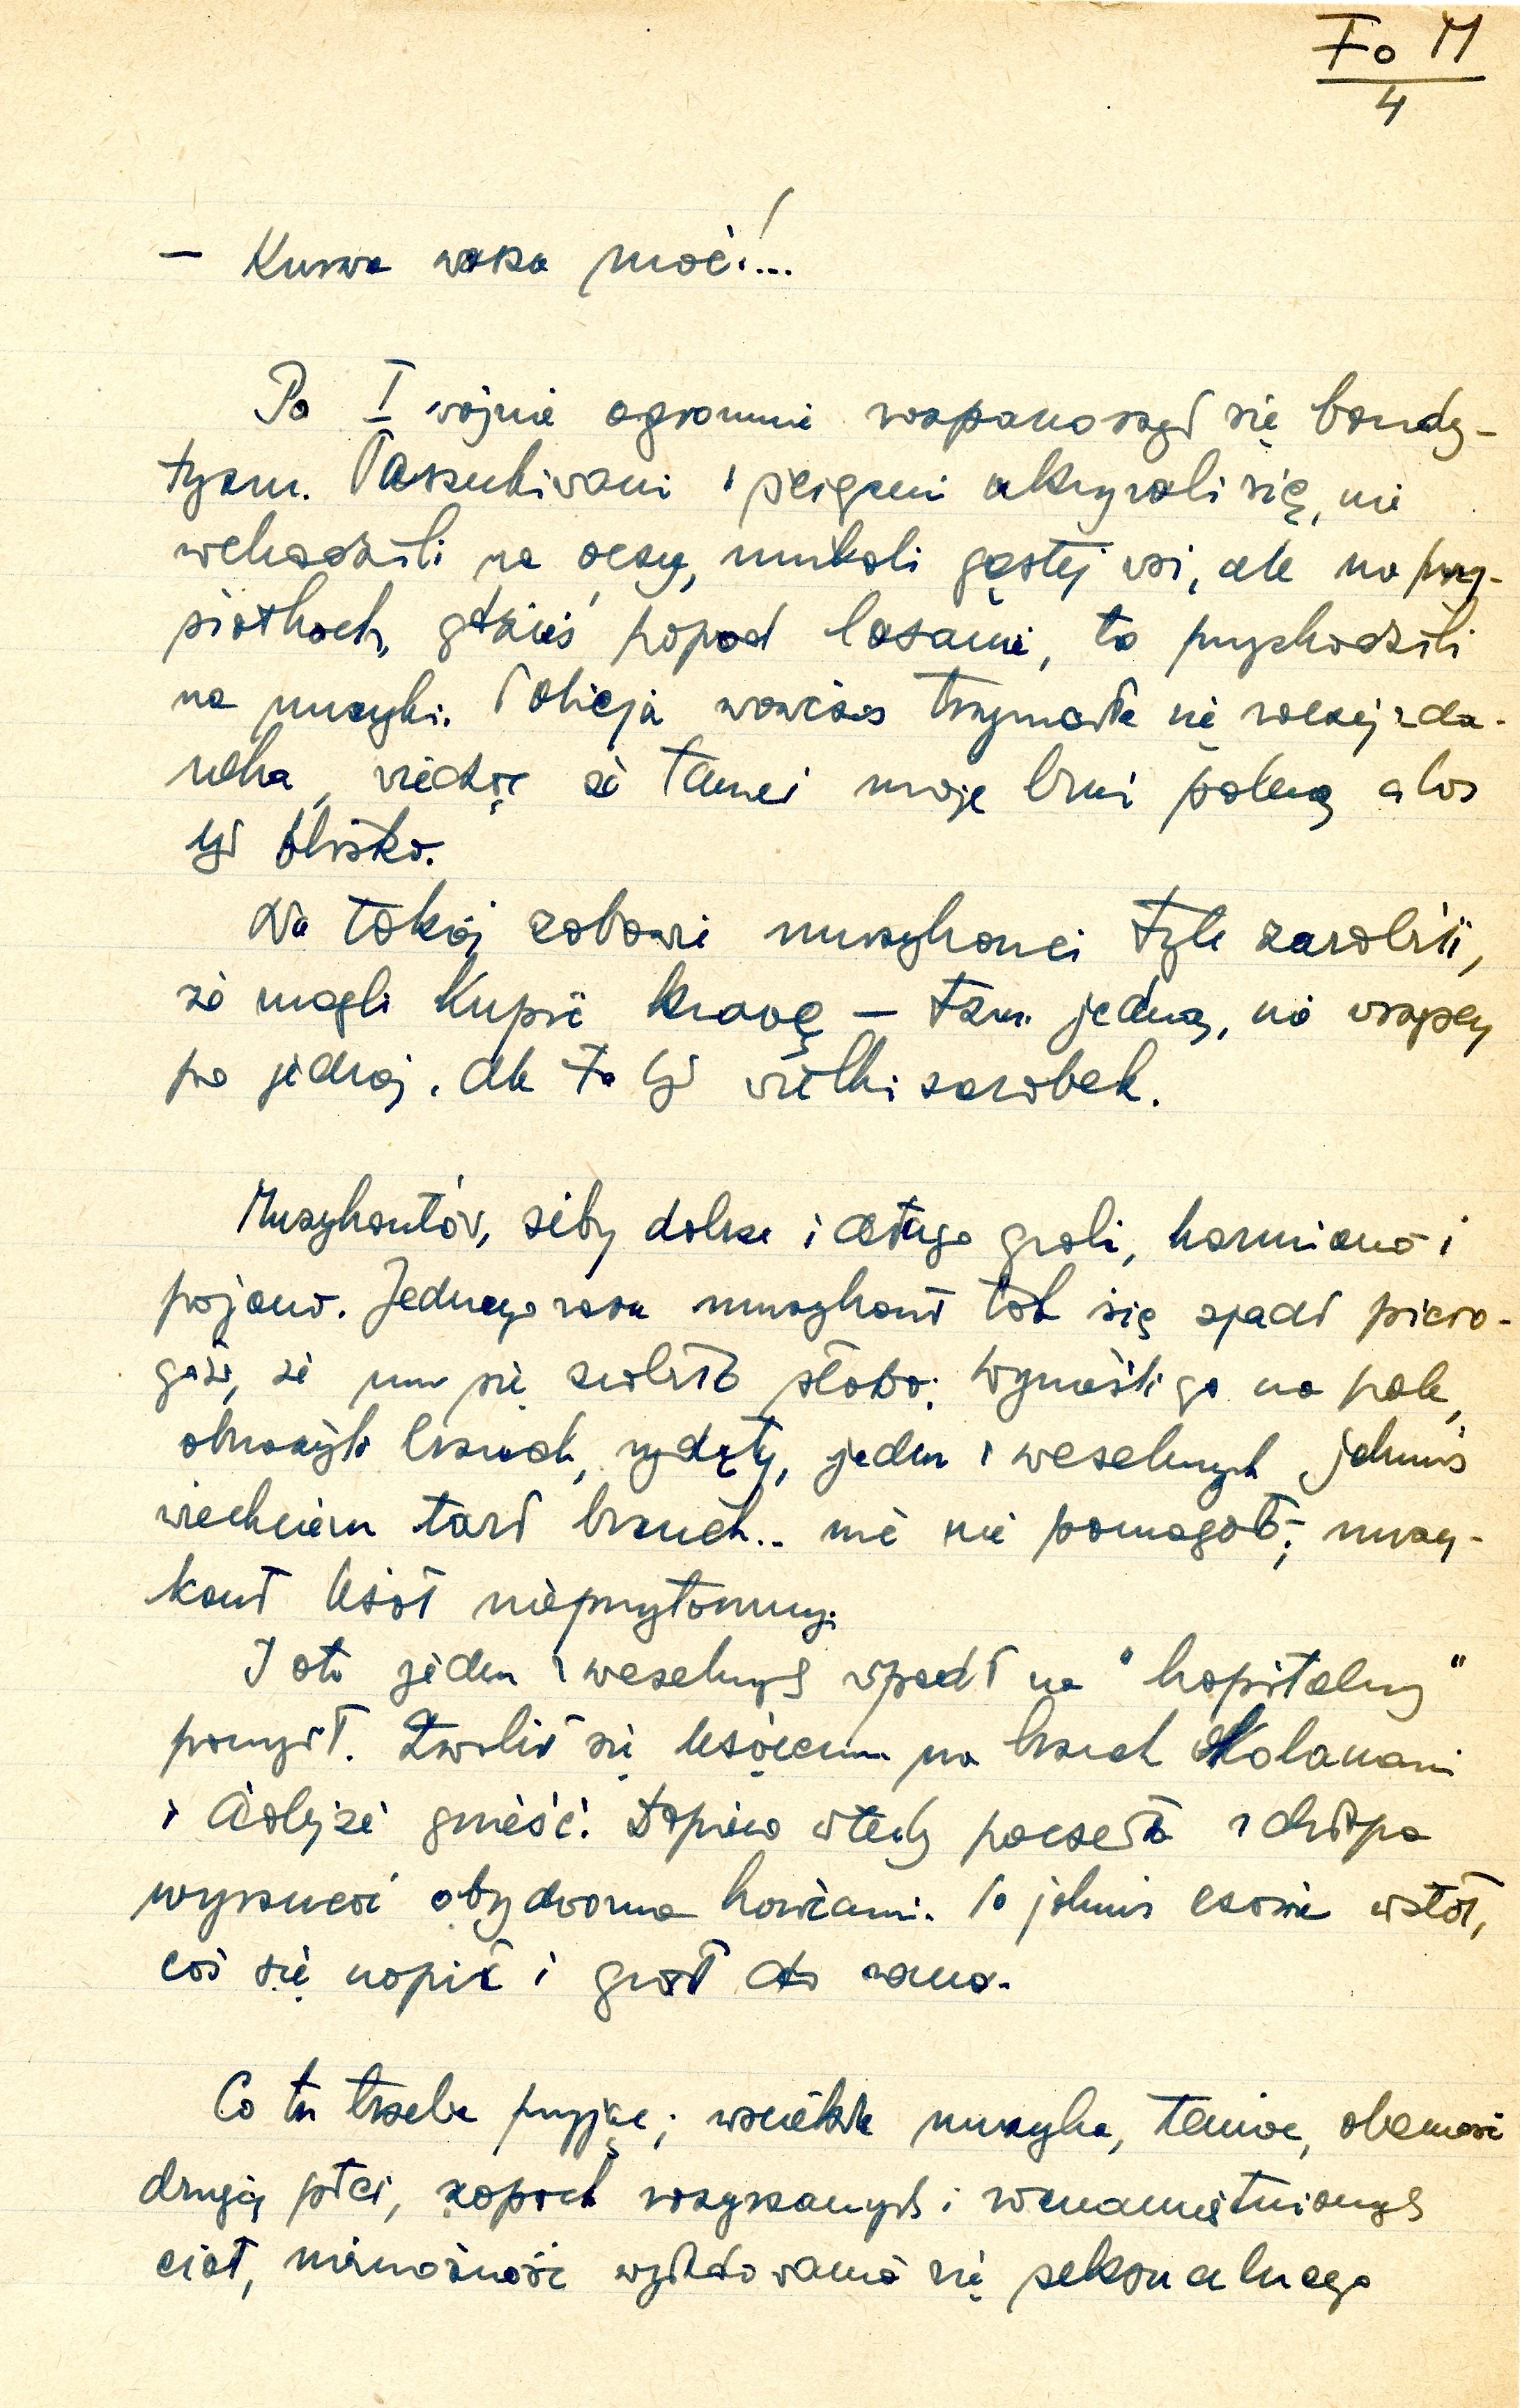 Fo M
4
— Kurwa wasza mać!...
Po I wojnie ogromnie rozpanoszył się bandy-
tyzm. Poszukiwani i ścigani ukrywali się, nie
wchodzili na oczy, unikali gęstej wsi, ale na przy-
siółkach, gdzieś popod lasami, to przychodzili
na muzyki. Policja wówczas trzymała się raczej zda-
leka, wiedząc że tamci mają broń palną a las
był blisko.
Na takiej zabawie muzykanci tyle zarobili,
że mogli kupić krowę — tzn. jedną, nie wszyscy
po jednej. Ale to był wielki zarobek.
Muzykantów, żeby dobrze i długo grali, karmiono i
pojono. Jednego razu muzykant tak się zjadł piero-
gów, że mu się zrobiło słabo; wynieśli go na pole,
obnażyli brzuch, wydęty, jeden z weselnych jakimś
wiechciem tarł brzuch.. nic nie pomagało; muzy-
kant leżał nieprzytomny.
I oto jeden z weselnych wpadł na "kapitalny"
pomysł. Zwalił się leżącemu na brzuch kolanami
i dalejże gnieść! Dopiero wtedy poczęło z chłopa
wyrzucać obydwoma końcami. Po jakimś czasie wstał,
coś się napił i grał do rana.
Co tu trzeba przyjąć; wściekła muzyka, taniec, obecność
drugiej płci, zapach rozgrzanych i roznamiętnionych
ciał, niemożność wyładowania się seksualnego